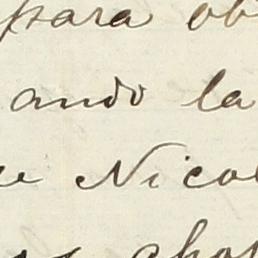 para ob
ando la
ue Nicol